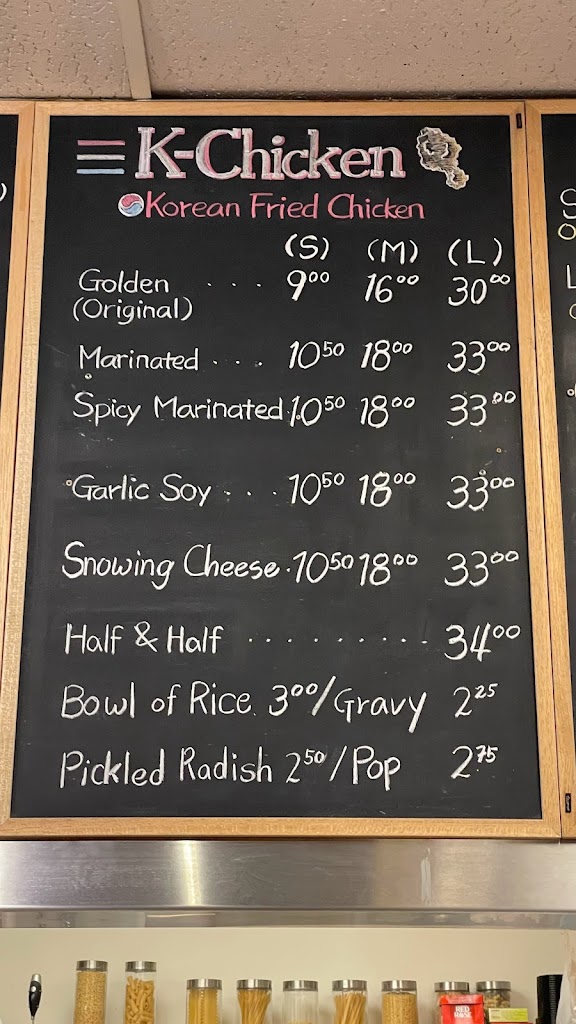 K-Chicken
Korean Fried Chicken
(S) (M) (L)
Golden . . . 9⁰⁰ 16⁰⁰ 30⁰⁰
(Original)
Marinated . . . 10⁵⁰ 18⁰⁰ 33⁰⁰
Spicy Marinated 10⁵⁰ 18⁰⁰ 33⁰⁰
Garlic Soy . . . 10⁵⁰ 18⁰⁰ 33⁰⁰
Snowing Cheese . 10⁵⁰ 18⁰⁰ 33⁰⁰
Half & Half . . . . . . . . . . 34⁰⁰
Bowl of Rice 3⁰⁰/Gravy 2²⁵
Pickled Radish 2⁵⁰/Pop 2⁷⁵
RED
ROSE